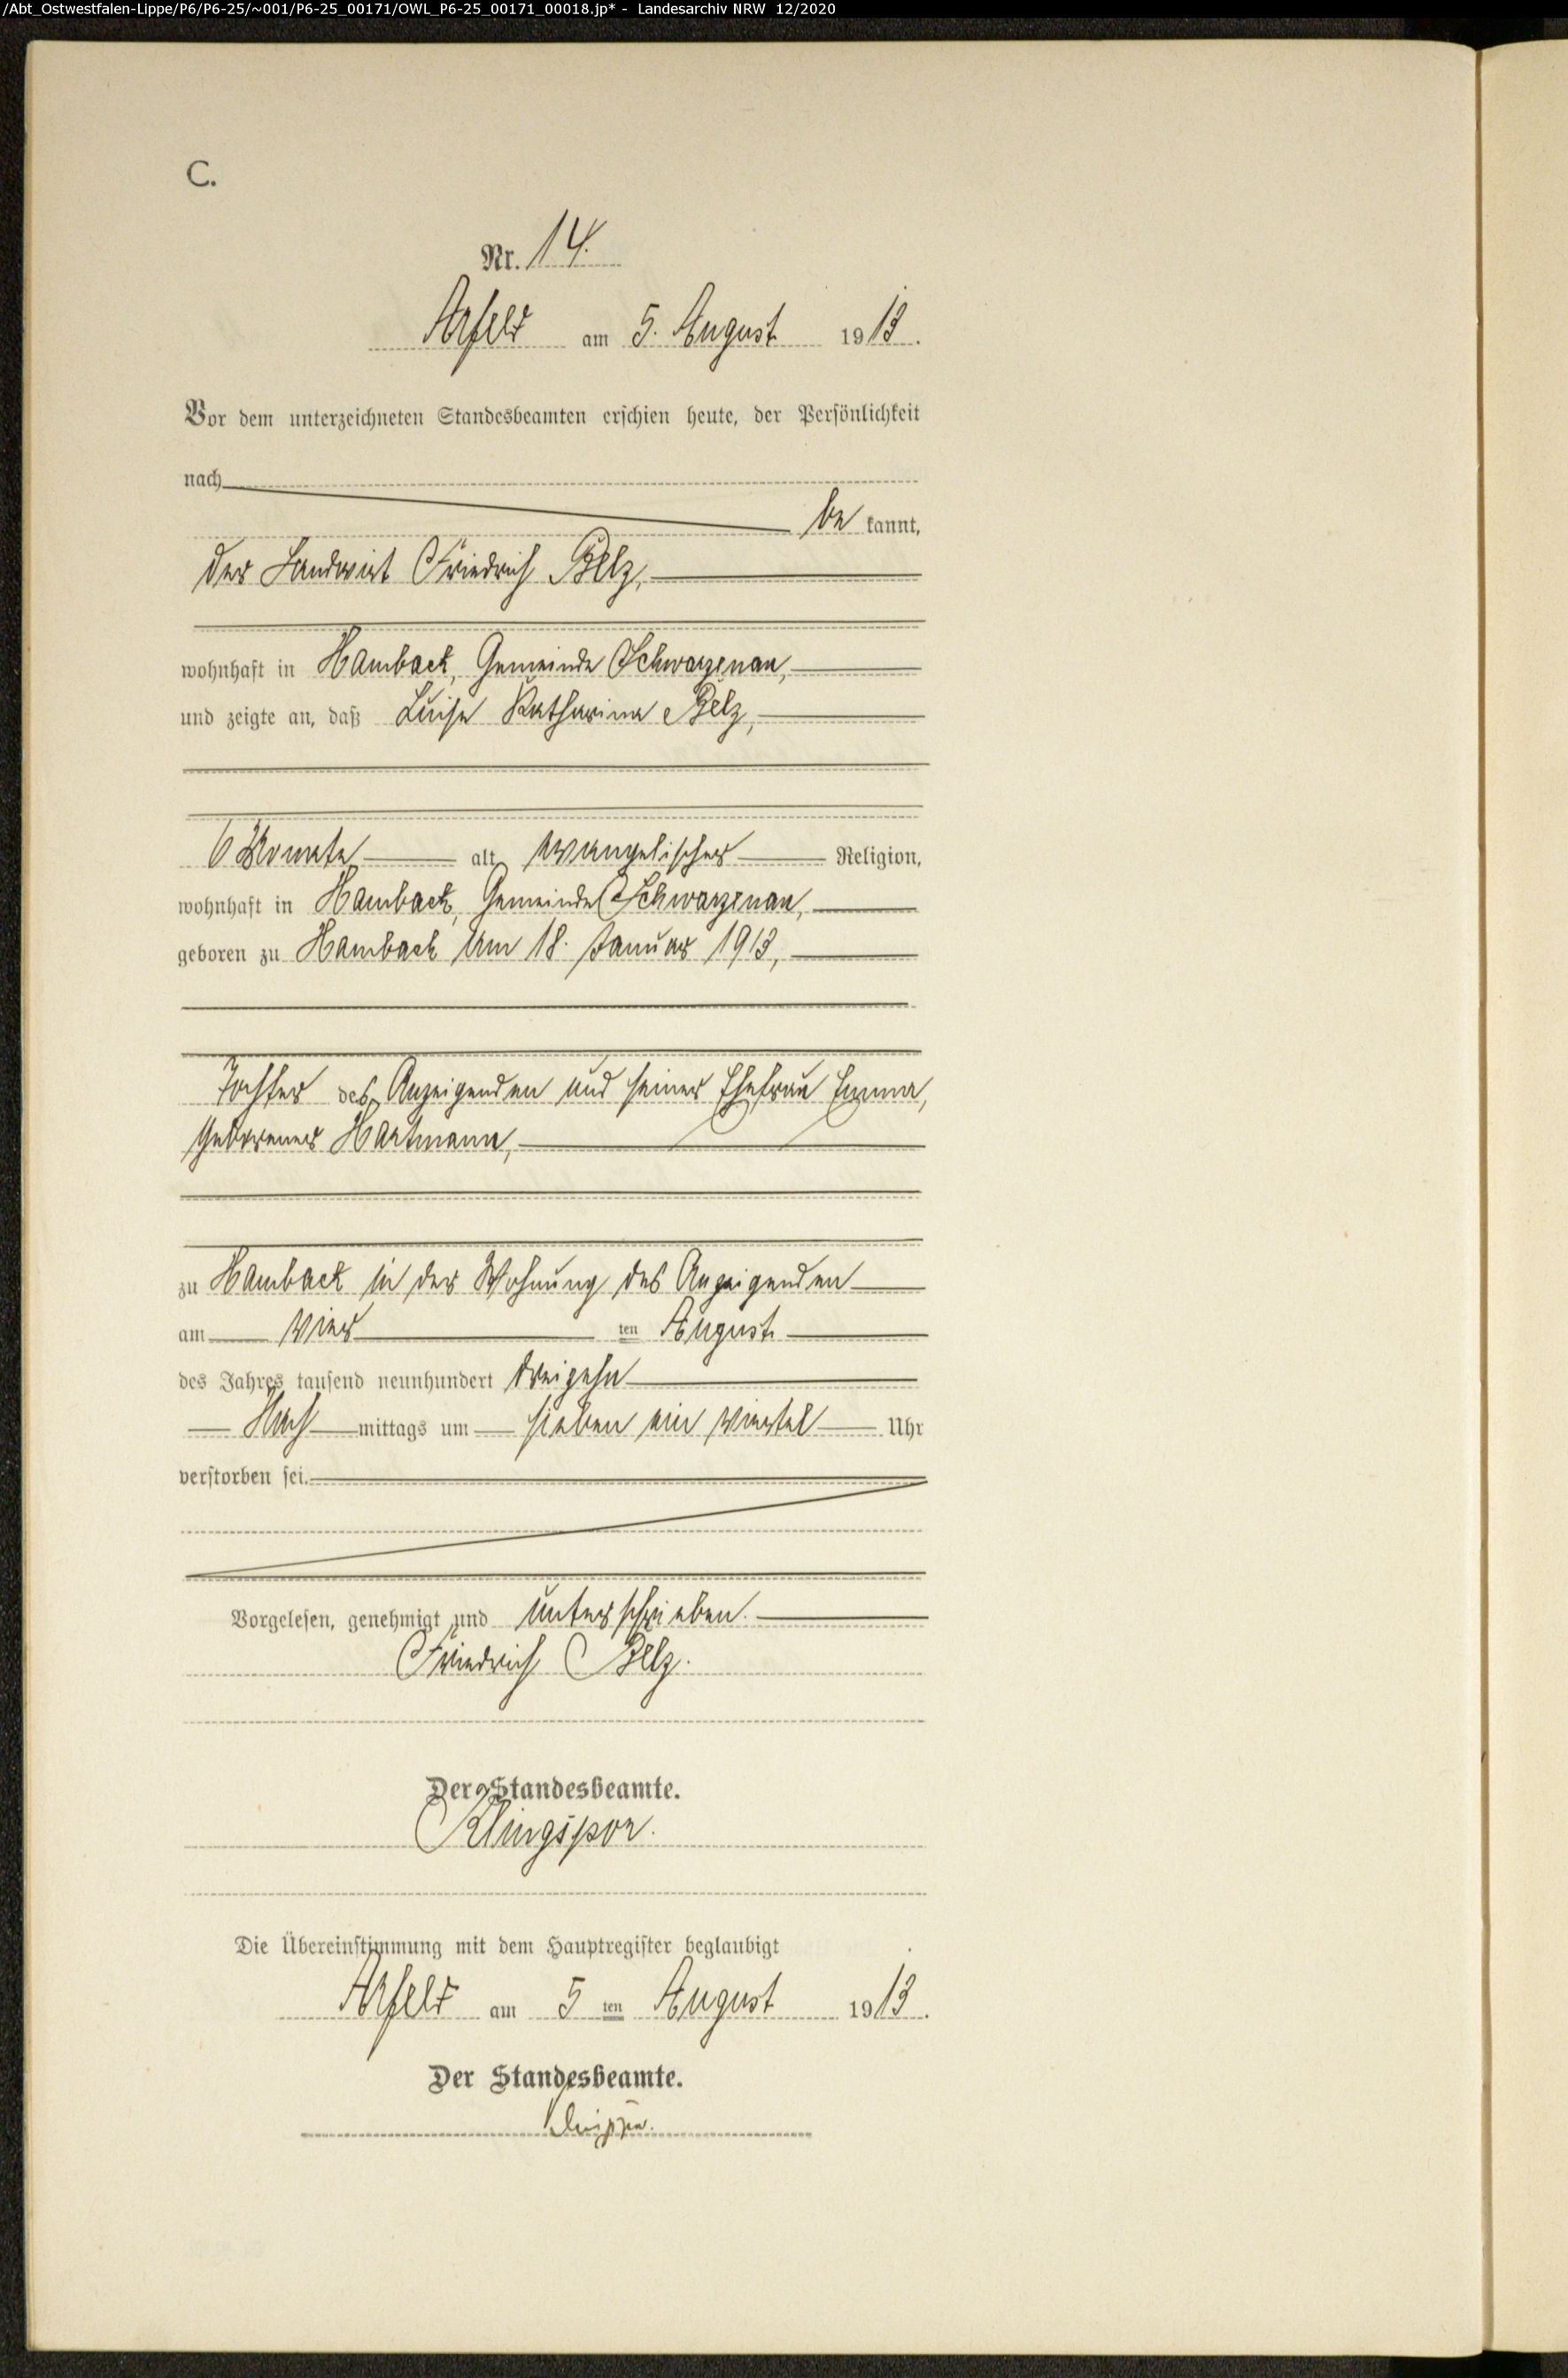 /Abt_Ostwestfalen-Lippe/P6/P6-25/~001/P6-25_00171/OWL_P6-25_00171_00018.jp* - Landesarchiv NRW 12/2020
C.
Nr. 14.
Arfeld am 5. August 1913.
Vor dem unterzeichneten Standesbeamten erschien heute, der Persönlichkeit
nach
be kannt,
der Landwirt Friedrich Belz,
wohnhaft in Hambach, Gemeinde Schwarzenau,
und zeigte an, daß Luise Katharina Belz,
6 Monate alt, evangelischer Religion,
wohnhaft in Hambach, Gemeinde Schwarzenau,
geboren zu Hambach am 18. Januar 1913,
Tochter des Anzeigenden und seiner Ehefrau Emma,
geborener Hartmann,
zu Hambach in der Wohnung des Anzeigenden
am vier ten August
des Jahres tausend neunhundert dreizehn
Nach mittags um sieben ein viertel Uhr
verstorben sei.
Vorgelesen, genehmigt und unterschrieben.
Friedrich Belz.
Der Standesbeamte.
Klingspor.
Die Übereinstimmung mit dem Hauptregister beglaubigt
Arfeld am 5 ten August 1913.
Der Standesbeamte.